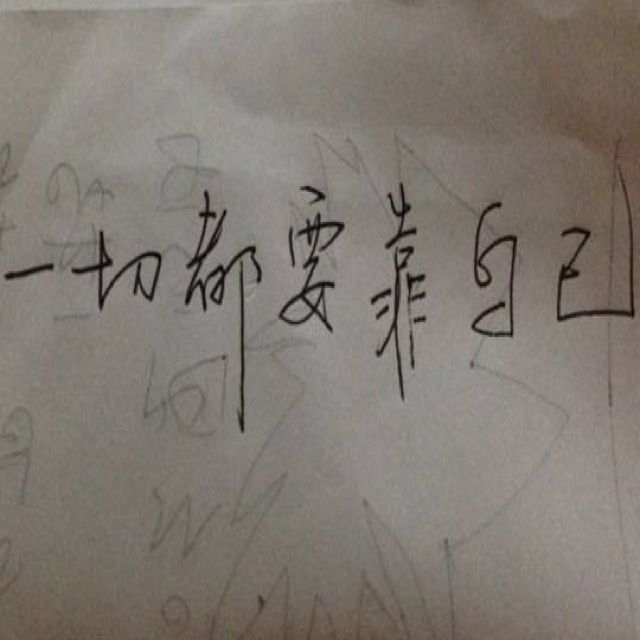 一切都要靠自己